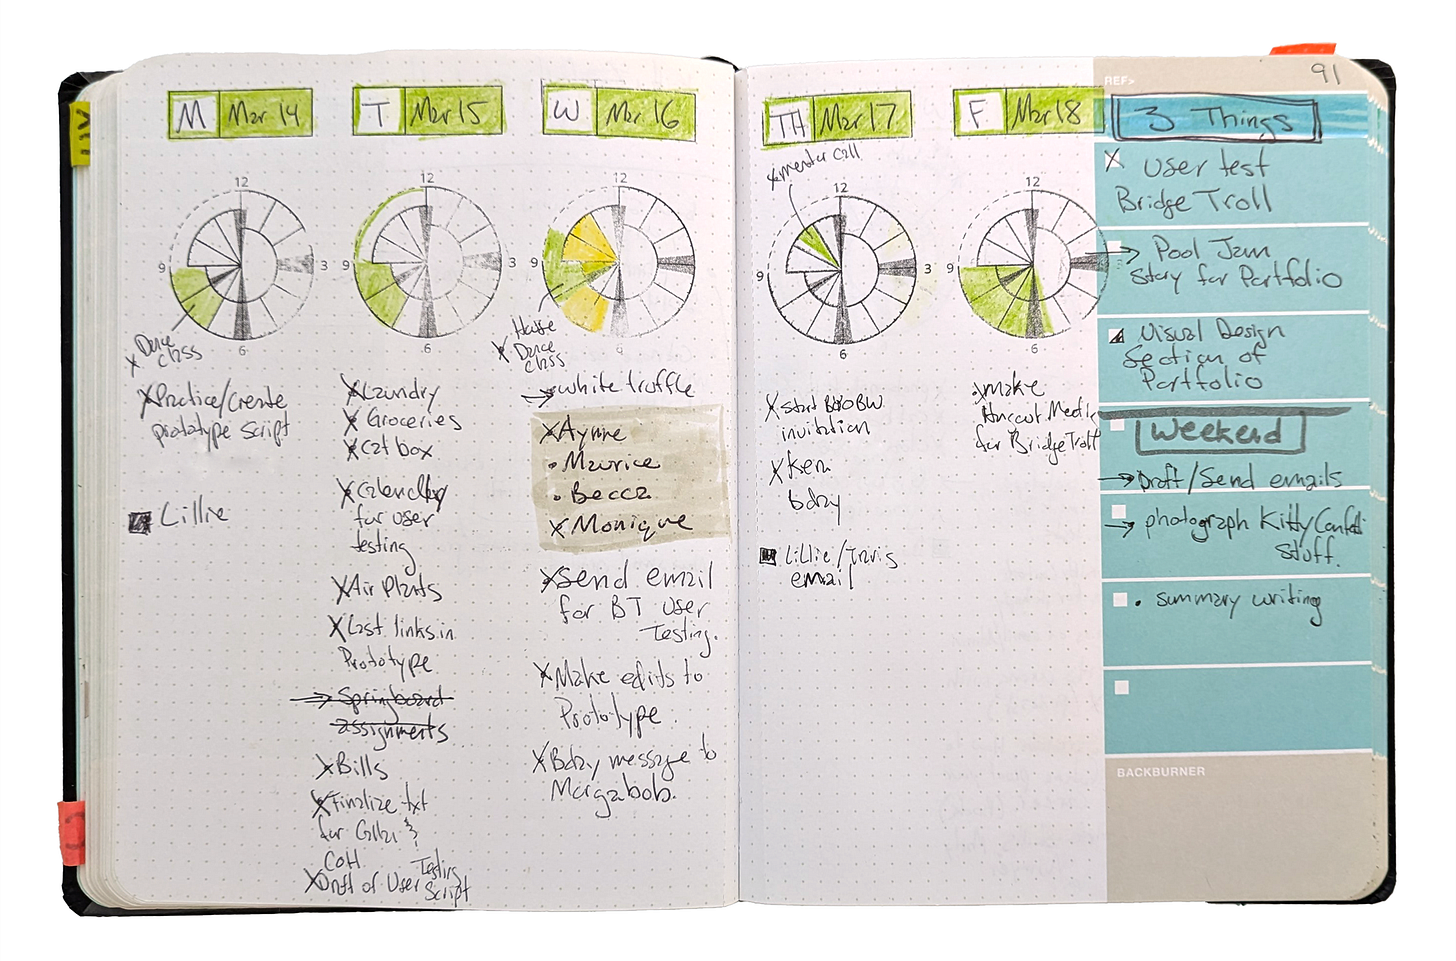 M Mar 14
12
3
6
9
x Dance
class
x Practice/create
prototype script
Lillie
T Mar 15
12
3
6
9
x Laundry
x Groceries
x Cat box
x Calendly
for user
testing
x Air Plants
x Last links in
Prototype
→ Springboard
assignments
x Bills
x Finalize txt
for
CoH
x Draft of User Testing
Script
W Mar 16
12
6
x House
Dance
class
→ white truffle
x Aynne
• Maurice
• Becca
x Monique
x Send email
for BT user
Testing.
x Make edits to
Prototype.
x Bday message to
Margabob.
TH Mar 17
x mentor call
12
3
6
9
x start
invitation
x Ken
bday
Lillie/Travis
email
F Mar 18
12
6
9
x make
Haircut Media
for Bridge Troll
91
REF>
3 Things
x user test
Bridge Troll
→ Pool Jam
Story for Portfolio
Visual Design
Section of
Portfolio
Weekend
→ Draft/Send emails
→ photograph Kitty Confetti
stuff.
• summary writing
BACKBURNER